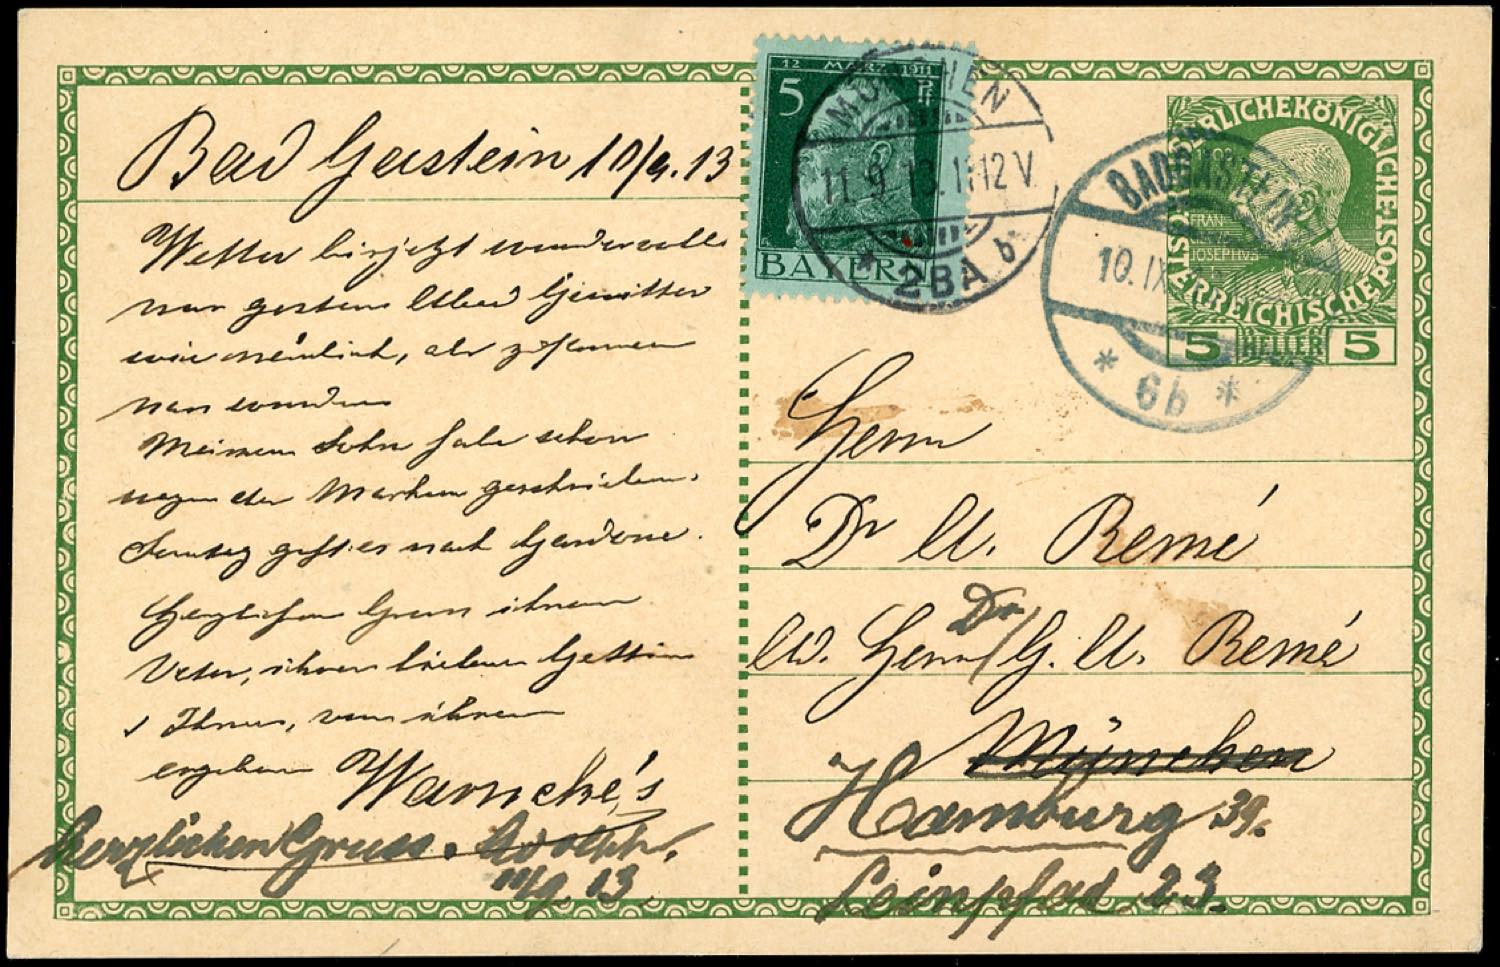 12 MÄRZ 1911
5
BAYERN
MÜNCHEN
11. 9. 13. 11-12 V.
* 2BA b*
KAISERLICHEKÖNIGLICHE ÖSTERREICHISCHE POST
FRAN
JOSEPHVS
5 HELLER 5
BADGASTEIN
10. IX
* 6b *
Bad Gastein 10/9. 13
Wetter bis jetzt wundervoll
nur gestern Abend Gewitter
wie neulich, als zusammen
wir wurden
Meinem Sohn habe schon
wegen der Marken geschrieben.
Sonntag geht es nach Gardone.
Herzlichen Gruss Ihrem
Vater, Ihrer lieben Gattin
u Ihnen, von Ihren
ergebenen Warncké's
Herzlichen Gruss. Adolph.
11/9. 13.
Herrn
Dr A. Remé
Ad. Herrn Dr G. A. Remé
München
Hamburg 39.
Leinpfad 23.